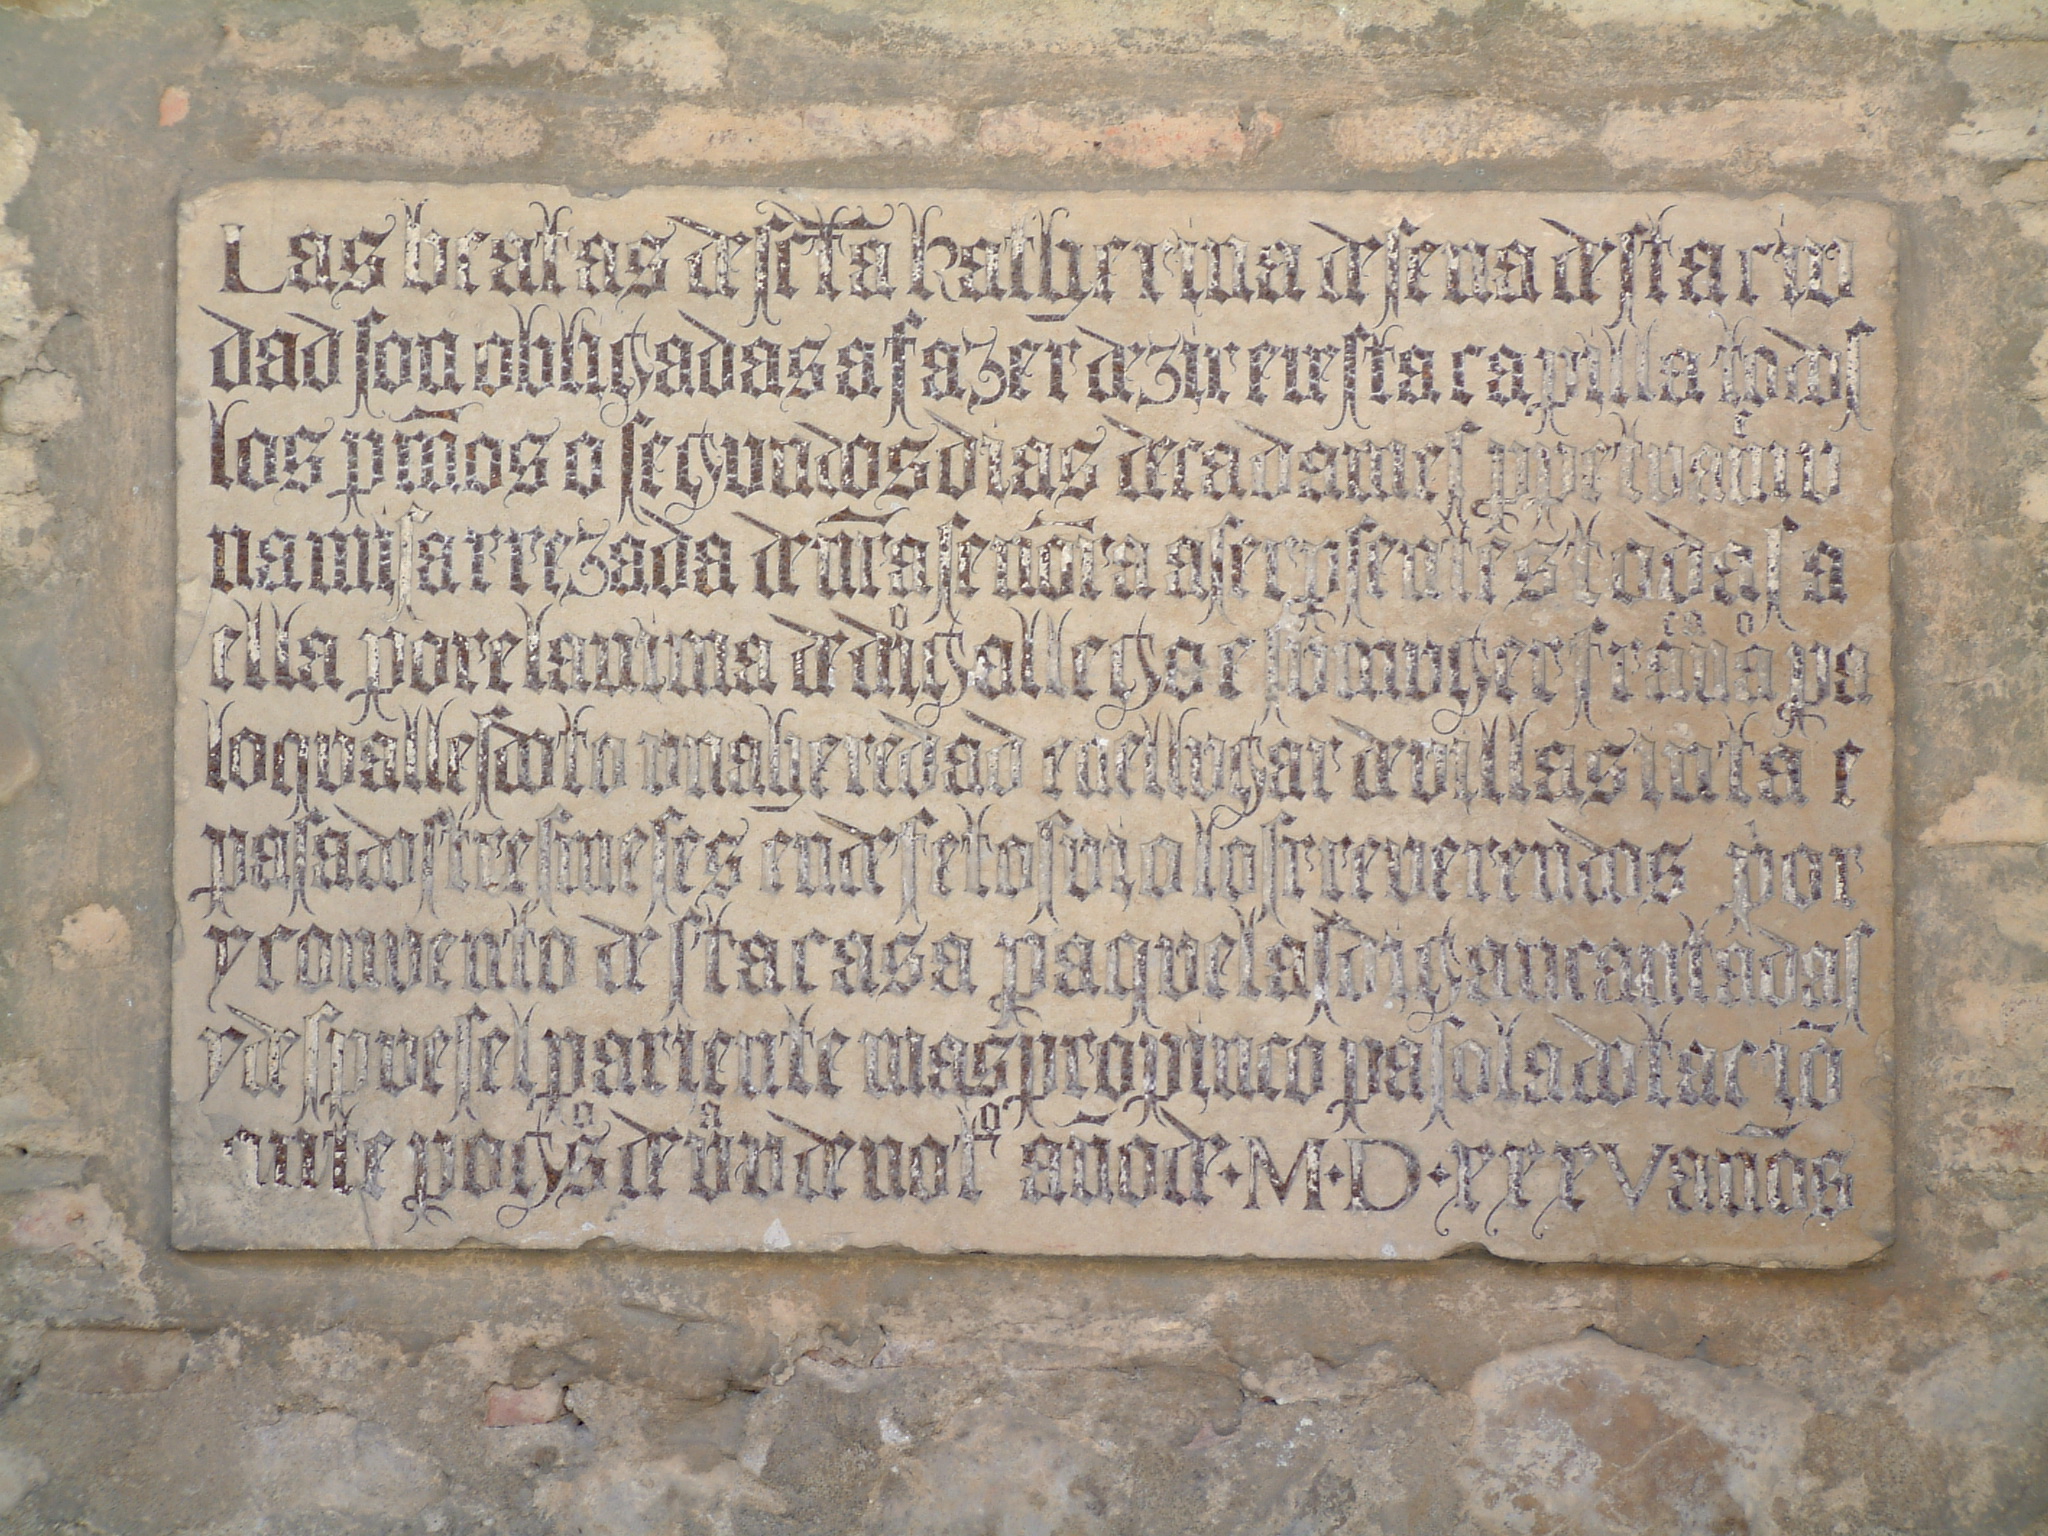 Las beatas de sctã katherina de sena desta ciu
dad son obbligadas a fazer dezir en esta capilla todos
los pm̃os o segundos dias de cada mes ppetuam̃ u
na misa rrezada de nr̃a señora a ser psentẽs todas a
ella por el anima de diº gallego e su muger frᶜᵃ dᵒ pa
lo qual les doto una heredad en el lugar de villasinta e
pasados tres meses en defeto suio los rreverendos pior
y convento desta casa pa que las digan cantadas
y despues el pariente mas propinco pa so la dotaciõ
ante pº gˢº de vª vde notº año de · M · D · xxxV años